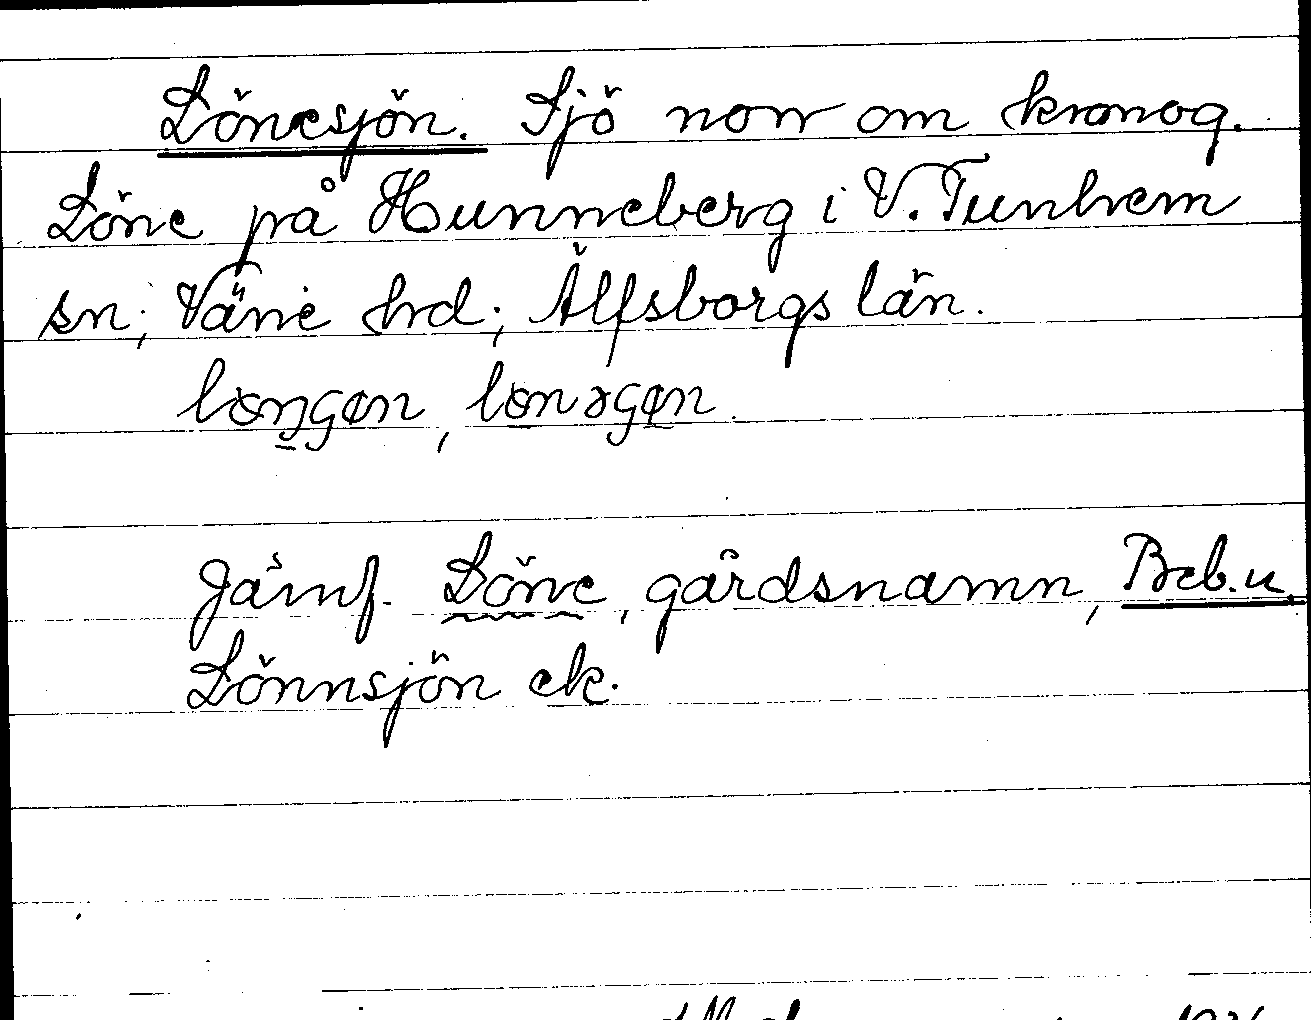 Lönesjön. Sjö norr om kronog.
Löne på Hunneberg i V. Tunhem
sn; Väne hrd; Älfsborgs län.
Jämf. Löne, gårdsnamn, Beb.u.
Lönnsjön ek.